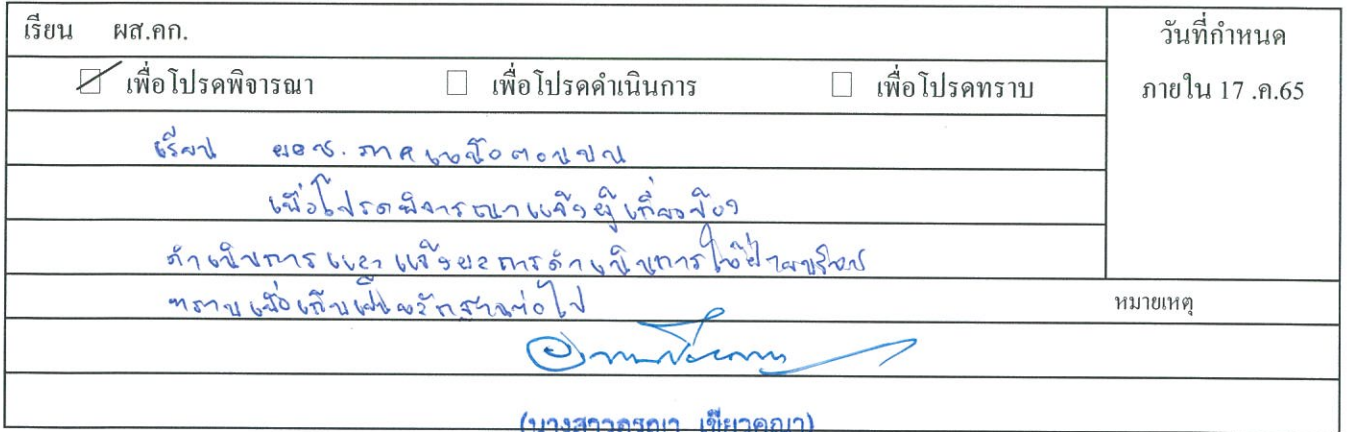 เรียน ผส.คก.
วันที่กำหนด
☑ เพื่อโปรดพิจารณา ☐ เพื่อโปรดดำเนินการ ☐ เพื่อโปรดทราบ
ภายใน 17 .ค.65
เรียน ผอช. ภาคเหนือตอนบน
เพื่อโปรดพิจารณาแจ้งผู้เกี่ยวข้อง
ดำเนินการและแจ้งผลการดำเนินการให้ฝ่าย
ทราบเพื่อเก็บเป็นหลักฐานต่อไป
หมายเหตุ
(นางสาวอรณา เขียวคณา)